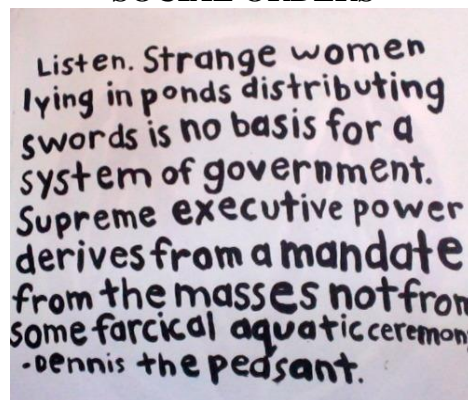 Listen. Strange women
lying in ponds distributing
swords is no basis for a
system of government.
Supreme executive power
derives from a mandate
from the masses not from
some farcical aquatic ceremony
-Dennis the peasant.